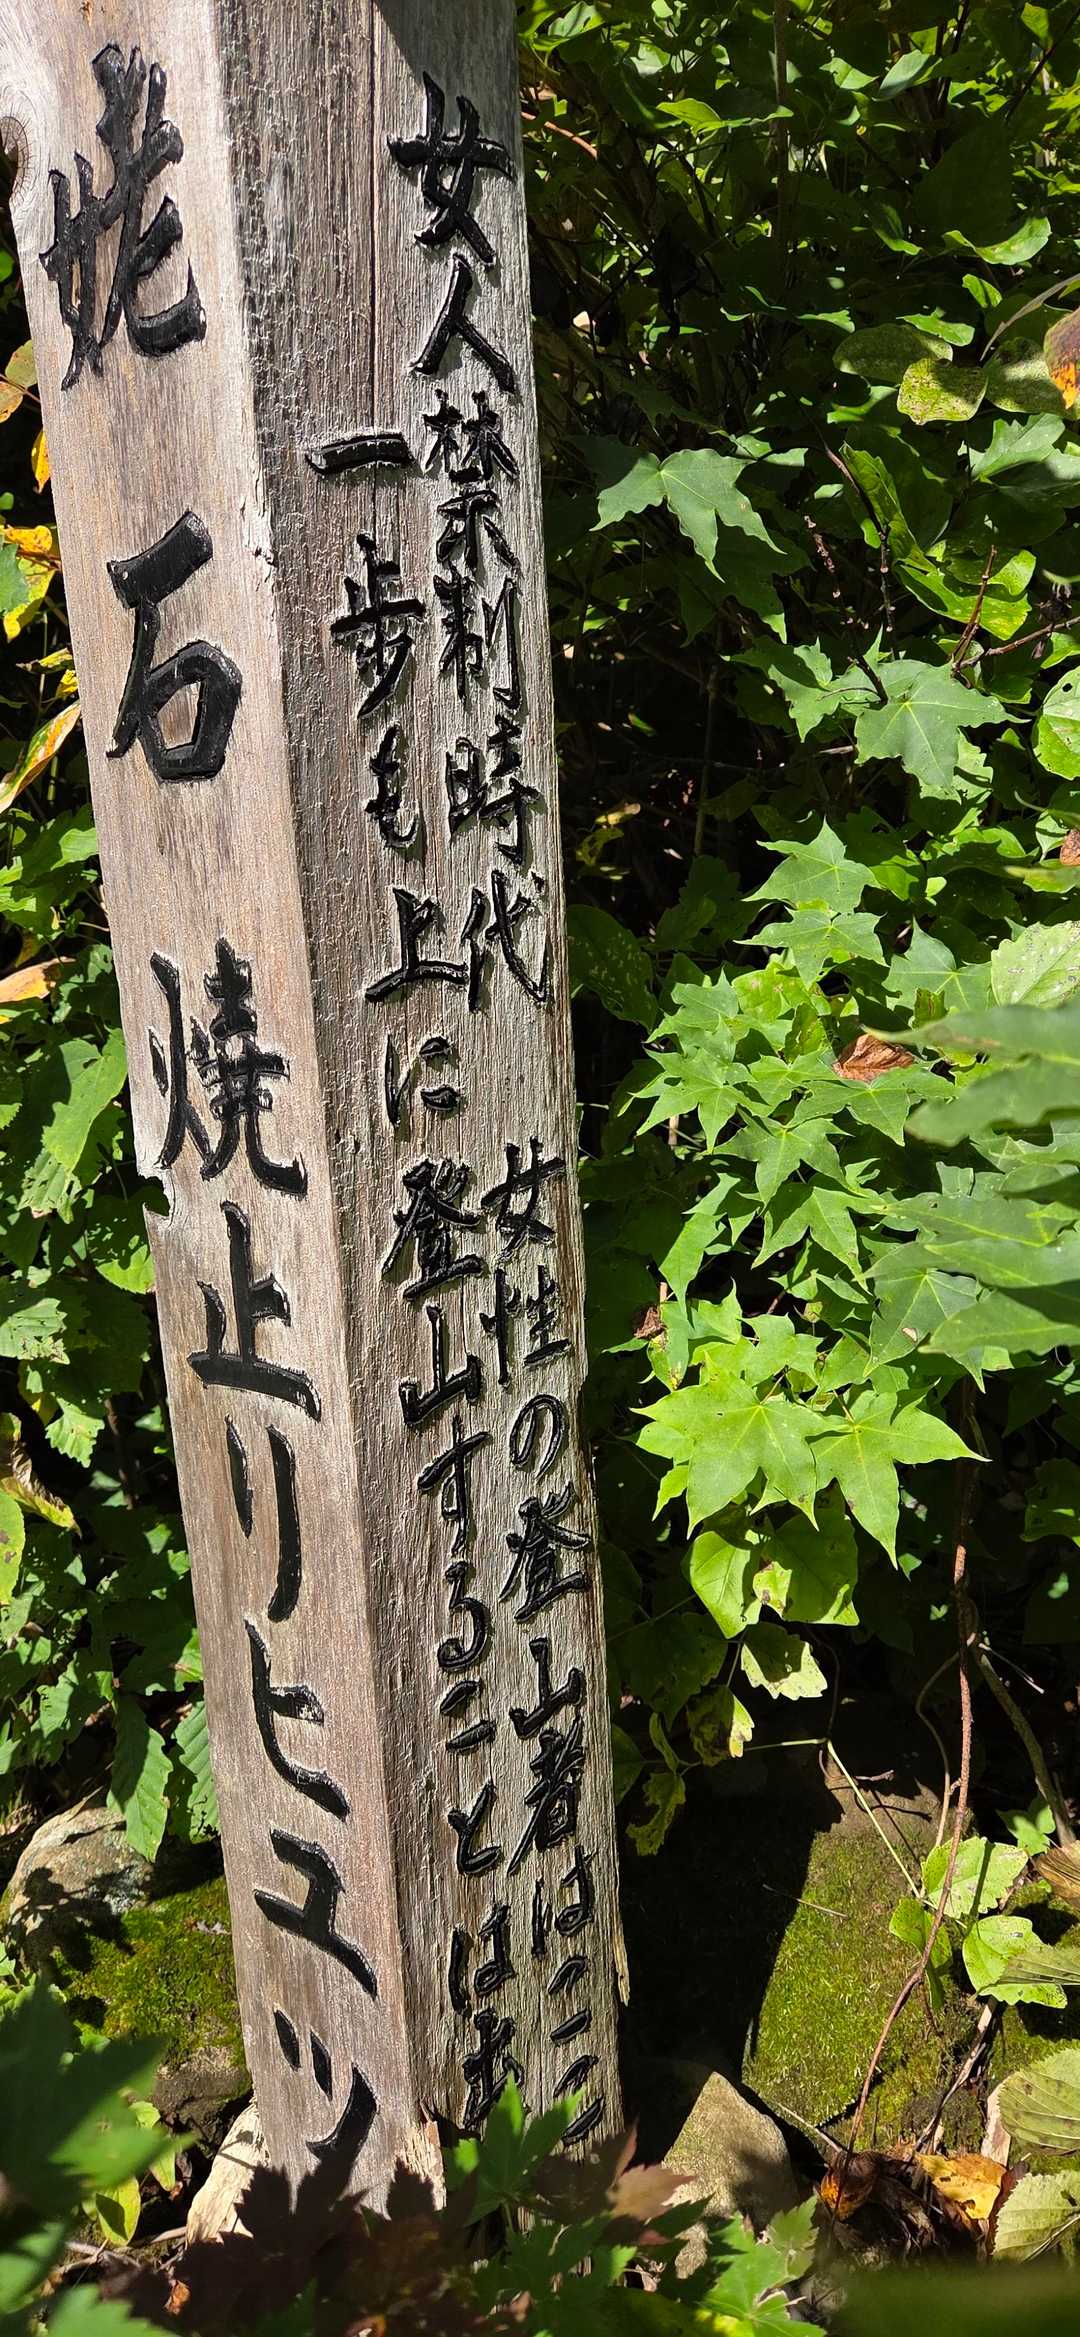 女人禁制時代 女性の登山者はここ
一歩も上に登山することは
姥石 焼止りヒユツ